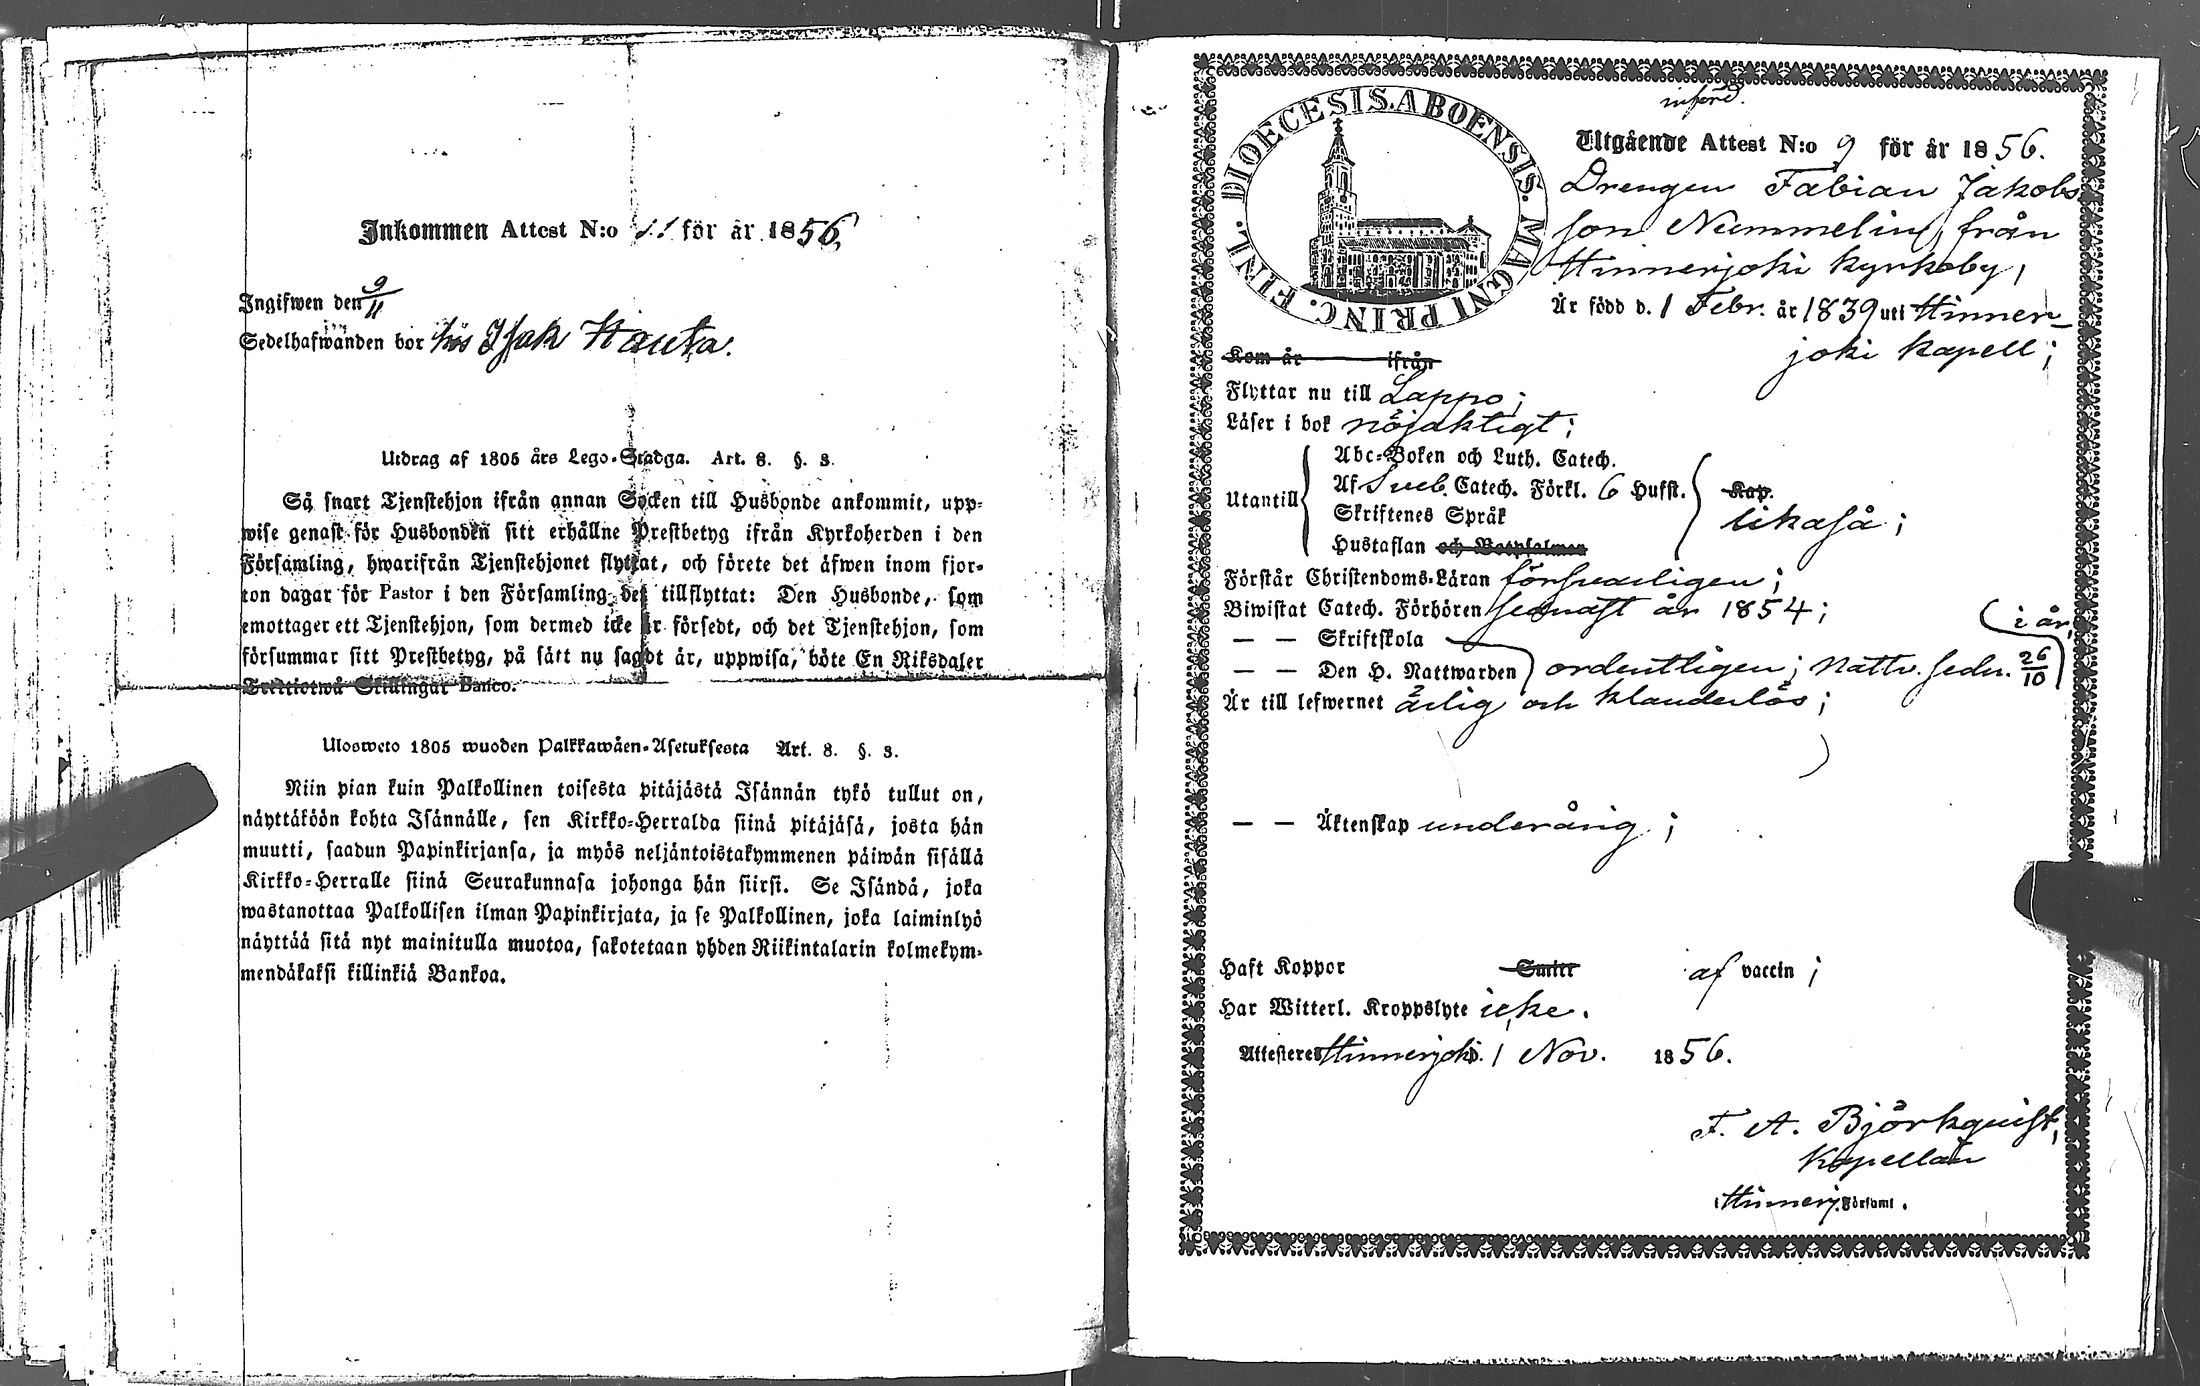 Inkommen Attest N:o 11 för år 1856,
Ingifwen den 9/11
Sedelhafwanden bor hos Isak Hauta.
Utdrag af 1805 års Lego-Stadga. Art. 8. §. 3.
Så snart Tjenstehjon ifrån annan Socken till Husbonde ankommit, upp-
wise genast för Husbonden sitt erhållne Prestbetyg ifrån Kyrkoherden i den
Församling, hwarifrån Tjenstehjonet flyttat, och förete det äfwen inom fjor-
ton dagar för Pastor i den Församling det tillflyttat: Den Husbonde, som
emottager ett Tjenstehjon, som dermed icke är försedt, och det Tjenstehjon, som
försummar sitt Prestbetyg, på sätt nu sagdt är, uppwisa, böte En Riksdaler
Trettiotwå Skillingar Banco.
Ulosweto 1805 wuoden Palkkawäen-Asetuksesta Art. 8. §. 3.
Niin pian kuin Palkollinen toisesta pitäjästä Isännän tykö tullut on,
näyttäköön kohta Isännälle, sen Kirkko-Herralda siinä pitäjäsä, josta hän
muutti, saadun Papinkirjansa, ja myös neljäntoistakymmenen päiwän sisällä
Kirkko-Herralle siinä Seurakunnasa johonga hän siirsi. Se Isändä, joka
wastanottaa Palkollisen ilman Papinkirjata, ja se Palkollinen, joka laiminlyö
näyttää sitä nyt mainitulla muotoa, sakotetaan yhden Riikintalarin kolmekym-
mendäkaksi killinkiä Bankoa.
införd.
FINL. DIOECESIS. ABOENSIS. MAGNI PRINC.
Utgående Attest N:o 9 för år 1856.
Drengen Fabian Jakobs
son Nummelin, från
Hinnerjoki kyrkoby,
Är född d. 1 Febr. år 1839 uti Hinner-
joki kapell;
Kom år ifrån
Flyttar nu till Lappo;
Läser i bok nöjaktigt;
Abc-Boken och Luth. Catech.
Utantill Af Sveb. Catech. Förkl. 6 Hufst. Kap.
Skriftenes Språk likaså;
Hustaflan och Botpsalmen
Förstår Christendoms-Läran försvarligen;
Biwistat Catech. Förhören senast år 1854;
— — Skriftskola i år,
— — Den H. Nattwarden ordentligen; nattv. seder. 26/10
Är till lefwernet ärlig och klanderlös;
— — Äktenskap underårig;
Haft Koppor Smitt af vaccin;
Har Witterl. Kroppslyte icke.
Attesteres Hinnerjoki. 1 Nov. 1856.
F. A. Björkquist,
Kapellan
Hinnerj. Församl.